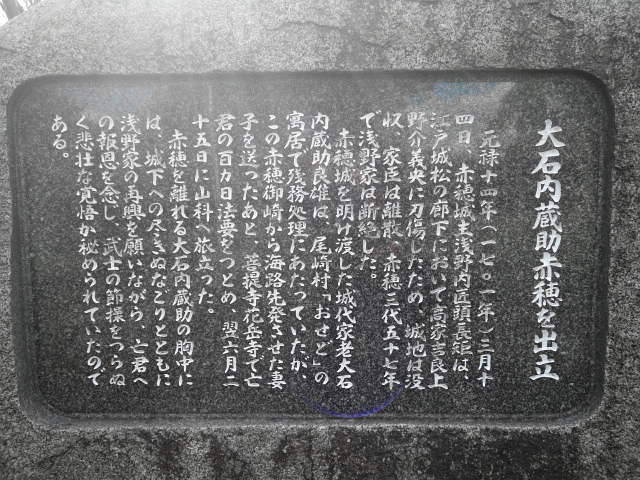 大石内蔵助赤穂を出立
元禄十四年(一七〇一年)三月十
四日、赤穂城主浅野内匠頭長矩は、
江戸城松の廊下において高家吉良上
野介義央に刃傷したため、城地は没
収、家臣は離散、赤穂三代五十七年
で浅野家は断絶した。
赤穂城を明け渡した城代家老大石
内蔵助良雄は、尾崎村「おせど」の
寓居で残務処理にあたっていたが、
この赤穂御崎から海路先発させた妻
子を送ったあと、菩提寺花岳寺で亡
君の百ヵ日法要をつとめ、翌六月二
十五日に山科へ旅立った。
赤穂を離れる大石内蔵助の胸中に
は、城下への尽きぬなごりとともに
浅野家の再興を願いながら、亡君へ
の報恩を念じ、武士の節操をつらぬ
く悲壮な覚悟が秘められていたので
ある。